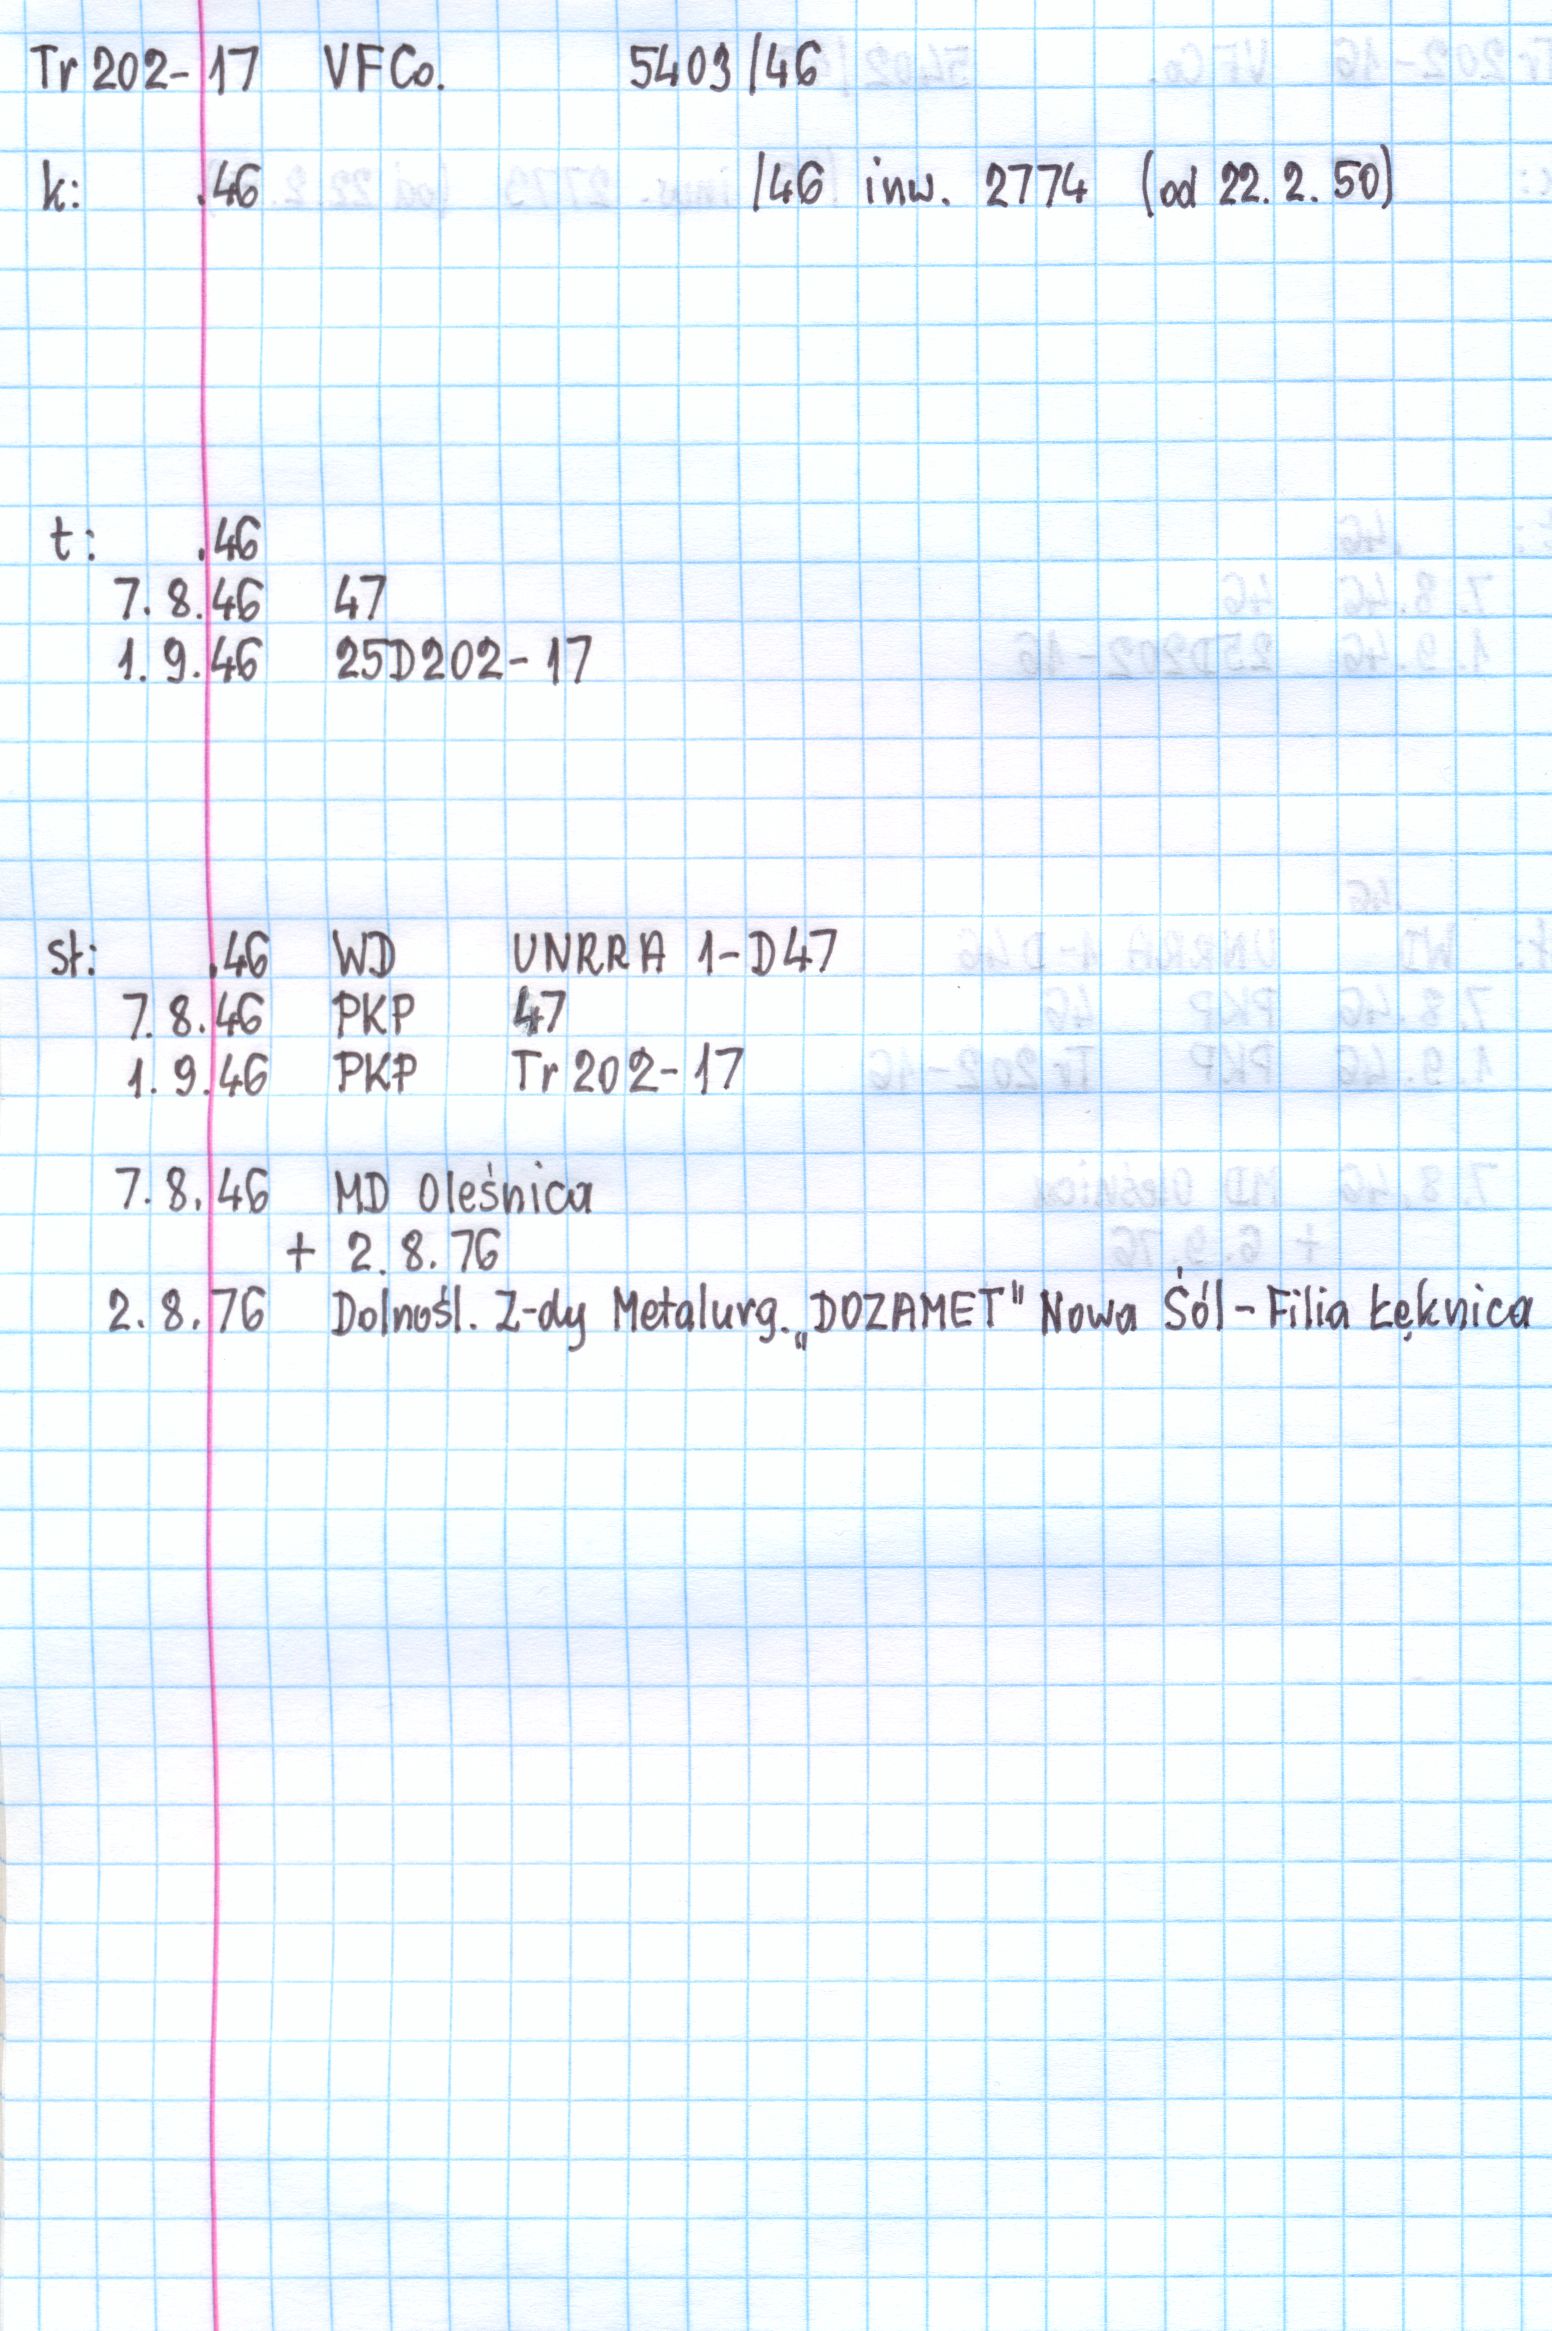 Tr 202-17 VFCo. 5403/46
k: .46 /46 inw. 2774 (od 22.2.50)
t: .46
7.8.46 47
1.9.46 25D202-17
st: .46 WD UNRRA 1-D47
7.8.46 PKP 47
1.9.46 PKP Tr 202-17
7.8.46 MD Oleśnica
+ 2.8.76
2.8.76 Dolnośl. Z-dy Metalurg. „DOZAMET" Nowa Śól - Filia Łęknica